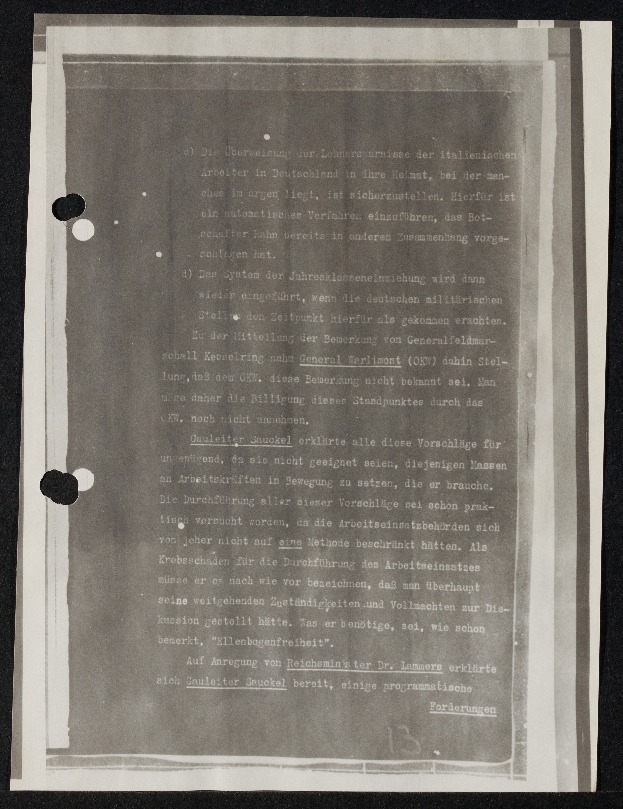 c) Die Überweisung der Lohnersparnisse der italienischen
Arbeiter in Deutschland in ihre Heimat, bei der man-
ches im argen liegt, ist sicherzustellen. Hierfür ist
ein automatisches Verfahren einzuführen, das Bot-
schafter Rahn bereits in anderem Zusammenhang vorge-
schlagen hat.
d) Das System der Jahresklasseneinziehung wird dann
wieder eingeführt, wenn die deutschen militärischen
Stellen den Zeitpunkt hierfür als gekommen erachten.
Zu der Mitteilung der Bemerkung von Generalfeldmar-
schall Kesselring nahm General Warlimont (OKW) dahin Stel-
lung, daß dem OKW. diese Bemerkung nicht bekannt sei. Man
möge daher die Billigung dieses Standpunktes durch das
OKW. noch nicht annehmen.
Gauleiter Sauckel erklärte alle diese Vorschläge für
ungenügend, da sie nicht geeignet seien, diejenigen Massen
an Arbeitskräften in Bewegung zu setzen, die er brauche.
Die Durchführung aller dieser Vorschläge sei schon prak-
tisch versucht worden, da die Arbeitseinsatzbehörden sich
von jeher nicht auf eine Methode beschränkt hätten. Als
Krebsschaden für die Durchführung des Arbeitseinsatzes
müsse er es nach wie vor bezeichnen, daß man überhaupt
seine weitgehenden Zuständigkeiten und Vollmachten zur Dis-
kussion gestellt hätte. Was er benötige, sei, wie schon
bemerkt, "Ellenbogenfreiheit".
Auf Anregung von Reichsminister Dr. Lammers erklärte
sich Gauleiter Sauckel bereit, einige programmatische
Forderungen
13